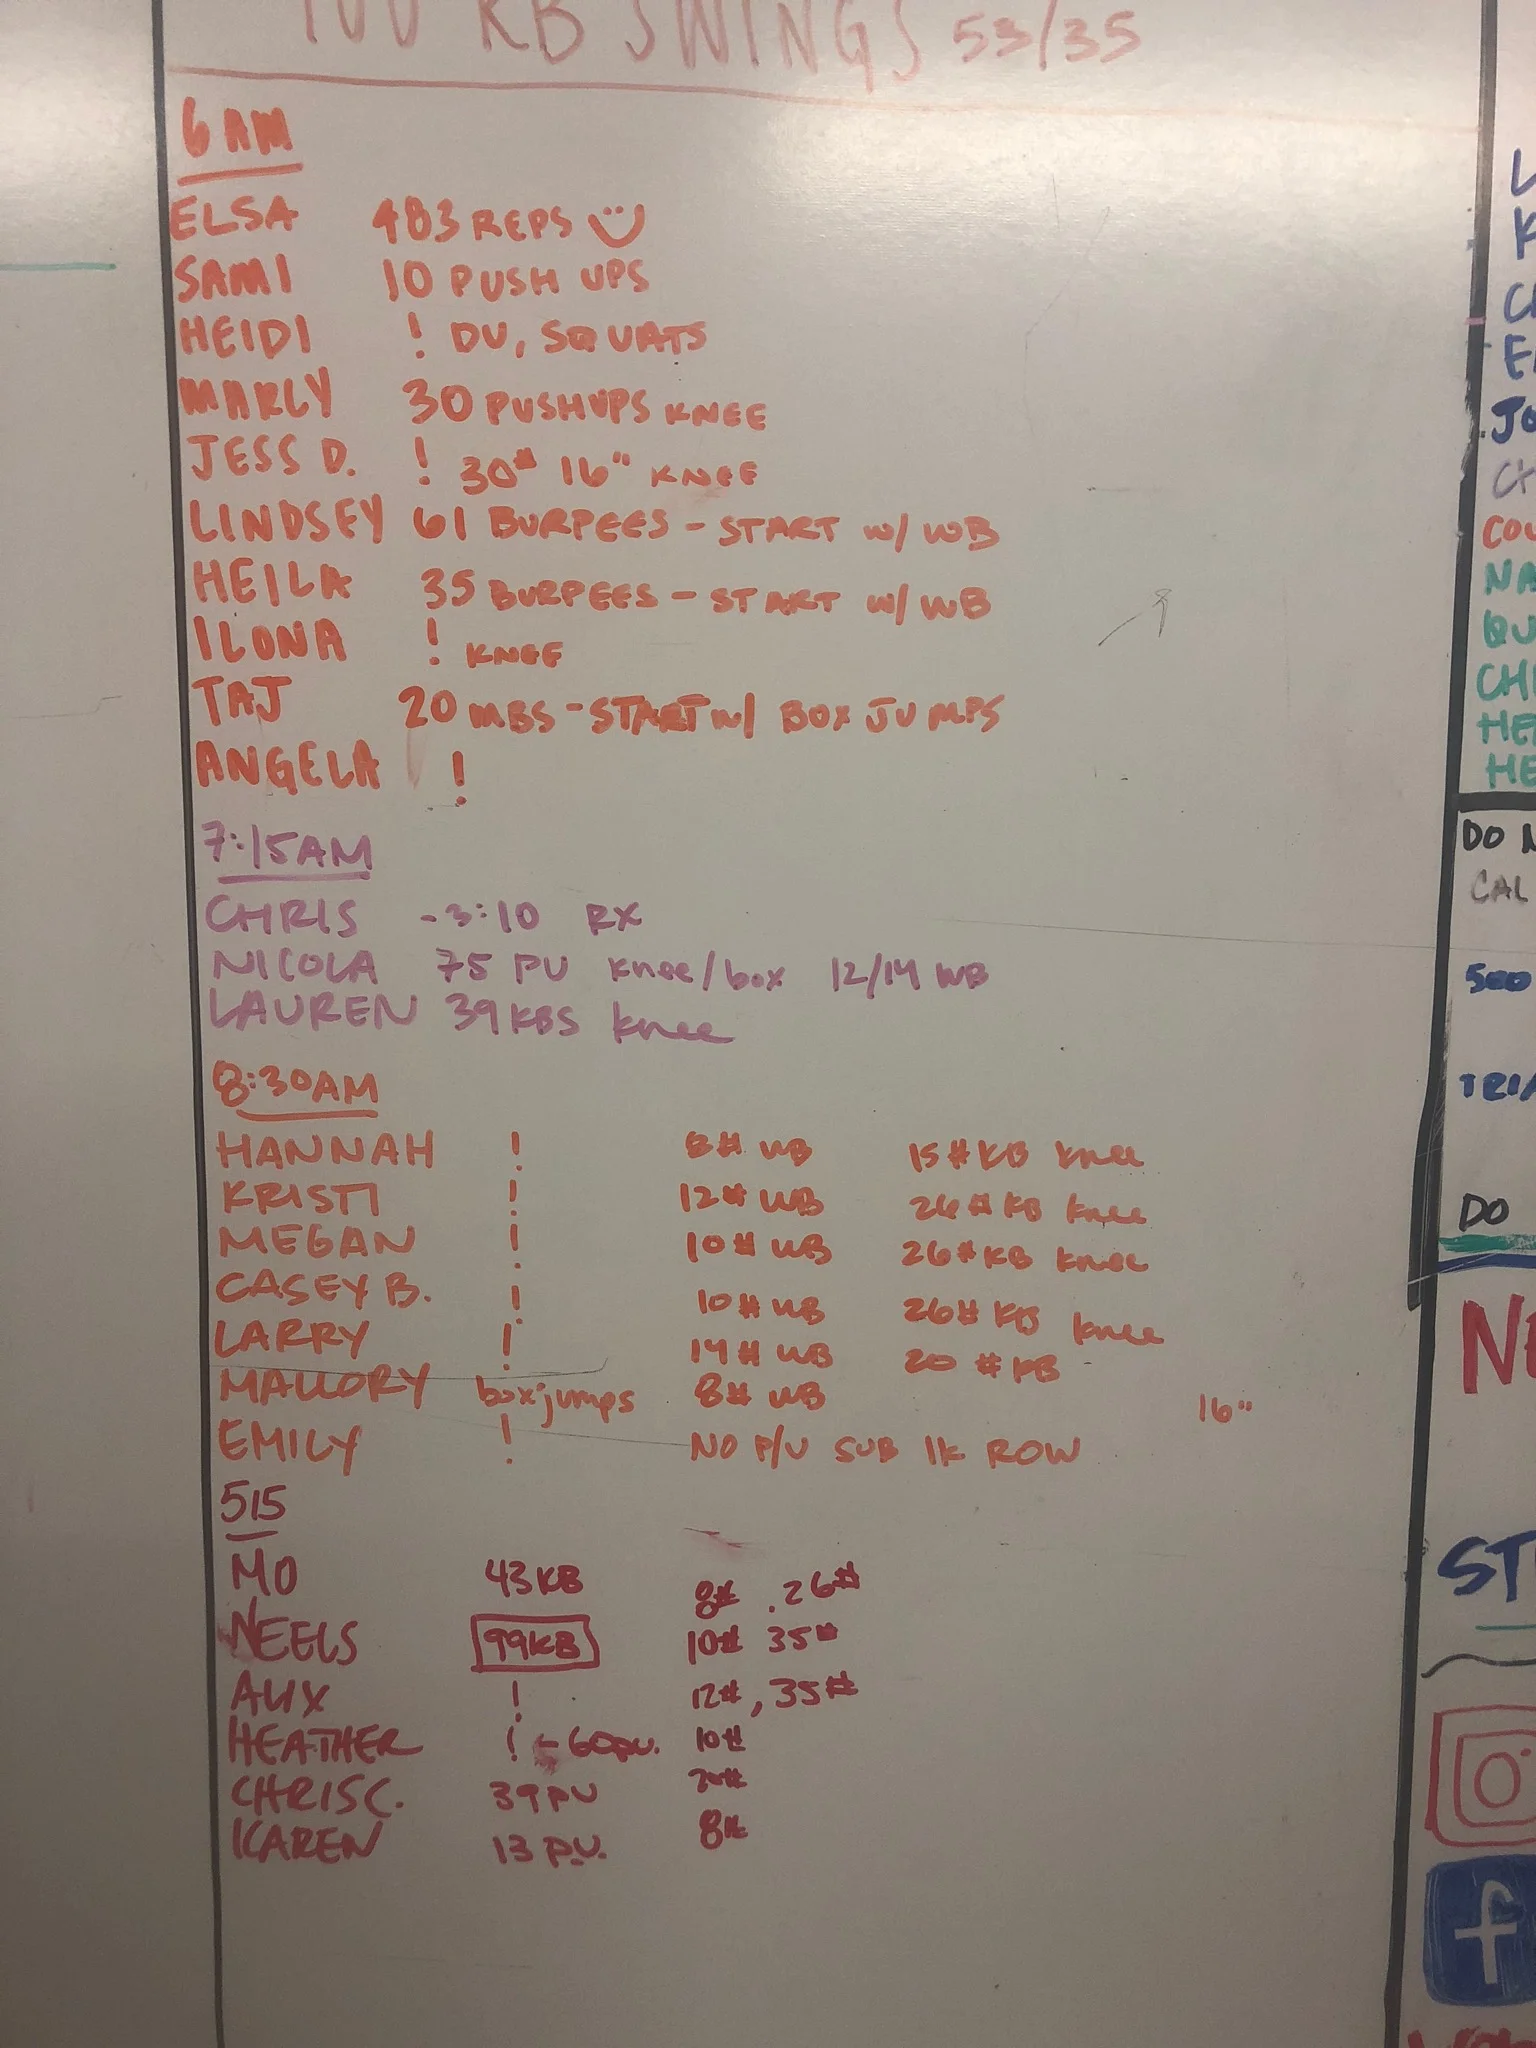 100 KB SWINGS 53/35
6AM
ELSA 483 REPS
SAMI 10 PUSH UPS
HEIDI ! DU, SQUATS
MARLY 30 PUSHUPS KNEE
JESS D. ! 30# 16" KNEE
LINDSEY 61 BURPEES - START W/ WB
HEILA 35 BURPEES - START W/ WB
ILONA ! KNEE
TAJ 20 MBS - START W/ BOX JUMPS
ANGELA !
7:15AM
CHRIS - 3:10 RX
NICOLA 75 PU knee/box 12/14 WB
LAUREN 39 KBS knee
8:30AM
HANNAH ! 8# WB 15# KB knee
KRISTI ! 12# WB 26# KB knee
MEGAN ! 10# WB 26# KB knee
CASEY B. ! 10# WB 26# KB knee
LARRY ! 14# WB 20 # KB
MALLORY box jumps 8# WB 16"
EMILY ! NO P/U SUB 1K ROW
515
MO 43KB 8# . 26#
NEELS 99KB 10# 35#
ALIX ! 12#, 35#
HEATHER ! - 60 PU. 10#
CHRIS C. 39 PU 20#
KAREN 13 P.U. 8#
JO
COU
NA
QU
CHR
HE
HE
DO N
CAL
500
TRI
DO
NE
ST
f